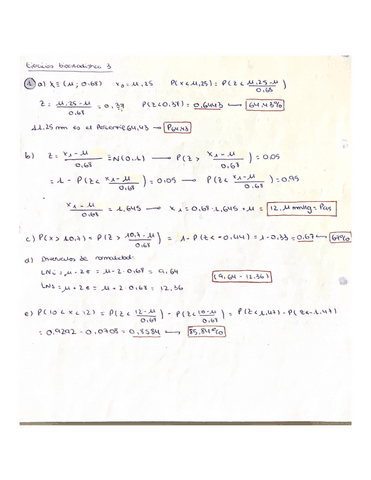 Ejercicios bioestadística 3
1 a) X ≡ (μ; 0.68) x₀ = 11,25 P(x < 11,25) = P(Z < 11,25 - μ / 0,68)
Z = 11,25 - μ / 0,68 = 0,37 P(Z < 0,37) = 0,6443 → 64.43%
11.25 mm es el Percentil 64,43 → P64.43
b) Z = x₁ - μ / 0,68 ≡ N(0,1) → P(Z > x₁ - μ / 0,68) = 0.05
= 1 - P(Z < x₁ - μ / 0,68) = 0.05 → P(Z < x₁ - μ / 0,68) = 0.95
x₁ - μ / 0,68 = 1,645 → x₁ = 0,68 · 1,645 + μ = 12,11 mmHg = P95
c) P(x > 10,7) = P(Z > 10,7 - μ / 0,68) = 1 - P(Z < -0,44) = 1 - 0,33 = 0.67 → 67%
d) Intervalos de normalidad:
LNi = μ - 2σ = μ - 2 · 0.68 = 9,64 (9,64 - 12.36)
LNs = μ + 2σ = μ + 2 · 0.68 = 12,36
e) P(10 < x < 12) = P(Z < 12 - μ / 0,68) - P(Z < 10 - μ / 0,68) = P(Z < 1,47) - P(Z < -1,47)
= 0.9292 - 0,0708 = 0,8584 → 85,84%